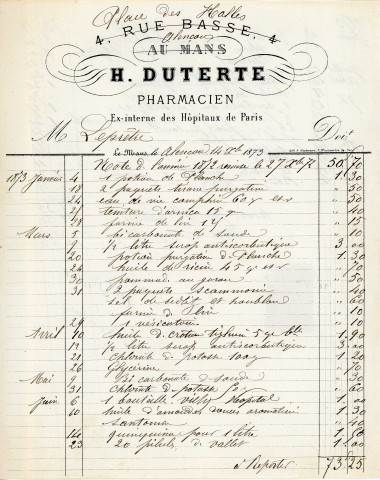 Place des Halles
4, RUE BASSE, 4
Alençon
AU MANS
H. DUTERTE
PHARMACIEN
Ex-interne des Hôpitaux de Paris
M Leprêtre Doit
Le Mans, Alencon 14 Xbre 1873
Note de l'année 1872 remise le 27 Xbre 72 50 70
1873 Janvier 4 1 potion de Planche 1 30
18 2 paquets tisane purgative " 50
24 eau de vie camphrée 60 gr " 30
teinture d'arnica 15 g " 40
farine de lin " 15
Mars 5 bi carbonate de soude " 10
9 1/2 litre sirop antiscorbutique 3 00
20 potion purgative de Planche 1 30
24 huile de ricin 45 gr " 70
30 pommade au garou " 50
31 2 paquets scammonée " 40
sel de sedlitz et houblon " 60
farine de lin " 10
29 1 vésicatoire " 10
Avril 10 huile de croton tiglium 5 gr 1 90
12 1/2 litre sirop antiscorbutique 3 00
21 Chlorate de potasse 100g 1 20
26 Glycérine " 70
Mai 9 Bi carbonate de soude " 30
31 Chlorate de potasse " 60
Juin 6 1 bouteille vichy hôpital 1 00
10 huile d'amandes douces 1 30
Santonine " 40
14 quinquina pour 1 litre 1 50
23 20 pilules de vallet 1 00
à Reporter 73 25